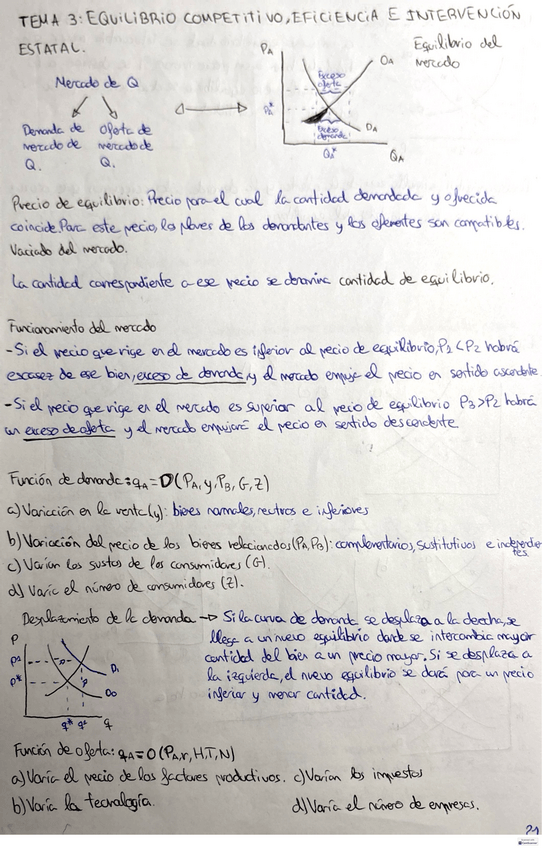 TEMA 3: EQUILIBRIO COMPETITIVO, EFICIENCIA E INTERVENCIÓN
ESTATAL.
Mercado de Q
Demanda de mercado de Q.
Oferta de mercado de Q.
PA
PA*
Exceso oferta
Exceso demanda
OA
DA
QA*
QA
Equilibrio del
mercado
Precio de equilibrio: Precio para el cual la cantidad demandada y ofrecida
coincide. Para este precio, los planes de los demandantes y los oferentes son compatibles.
Vaciado del mercado.
La cantidad correspondiente a ese precio se denomina cantidad de equilibrio.
Funcionamiento del mercado
- Si el precio que rige en el mercado es inferior al precio de equilibrio, P2 < P2 habrá
escasez de ese bien, exceso de demanda, y el mercado empuje el precio en sentido ascendente
- Si el precio que rige en el mercado es superior al precio de equilibrio P3>P2 habrá
un exceso de oferta y el mercado empujará el precio en sentido descendente
Función de demanda: qA = D(PA, y, PB, G, Z)
a) Variación en la renta (y): bienes normales, neutros e inferiores
b) Variación del precio de los bienes relacionados (PA, PB): complementarios, sustitutivos e independientes
c) Varían los gustos de los consumidores (G).
d) Varíe el número de consumidores (Z).
Desplazamiento de la demanda → Si la curva de demanda se desplaza a la derecha, se
llega a un nuevo equilibrio donde se intercambia mayor
cantidad del bien a un precio mayor. Si se desplaza a
la izquierda, el nuevo equilibrio se dará para un precio
inferior y menor cantidad.
P
P*
D1
D0
q*
q
Función de oferta: qA = O(PA, r, H, T, N)
a) Varía el precio de los factores productivos. c) Varían los impuestos
b) Varía la tecnología. d) Varía el número de empresas.
21